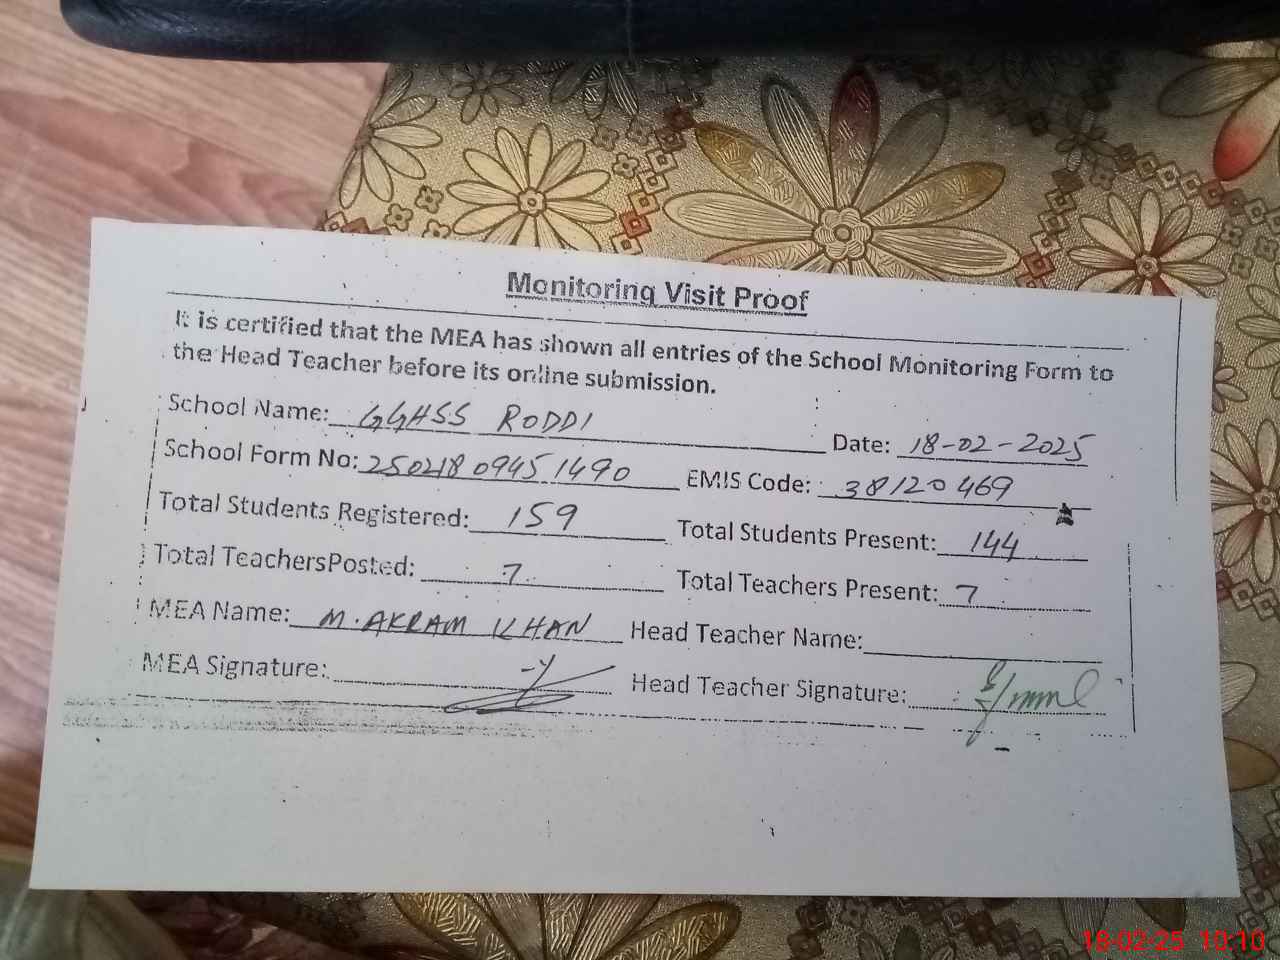 Monitoring Visit Proof
It is certified that the MEA has shown all entries of the School Monitoring Form to
the Head Teacher before its online submission.
School Name: GGHSS RODDI Date: 18-02-2025
School Form No: 250218 0945 1490 EMIS Code: 38120469
Total Students Registered: 159 Total Students Present: 144
Total TeachersPosted: 7 Total Teachers Present: 7
MEA Name: M. AKRAM KHAN Head Teacher Name:
MEA Signature: Head Teacher Signature:
18-02-25 10:10